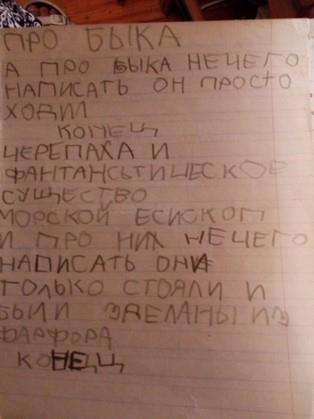 ПРО БЫКА
А ПРО БЫКА НЕЧЕГО
НАПИСАТЬ ОН ПРОСТО
ХОДИЛ
КОНЕЦ
ЧЕРЕПАХА И
ФАНТАНСЬТИЧЕСКОЕ
СУЩЕСТВО
МОРСКОЙ ЕСИСКОП
И ПРО НИХ НЕЧЕГО
НАПИСАТЬ ОНИ
ТОЛЬКО СТОЯЛИ И
БЫЛИ ИЗ
ФАРФОРА
КОНЕЦ